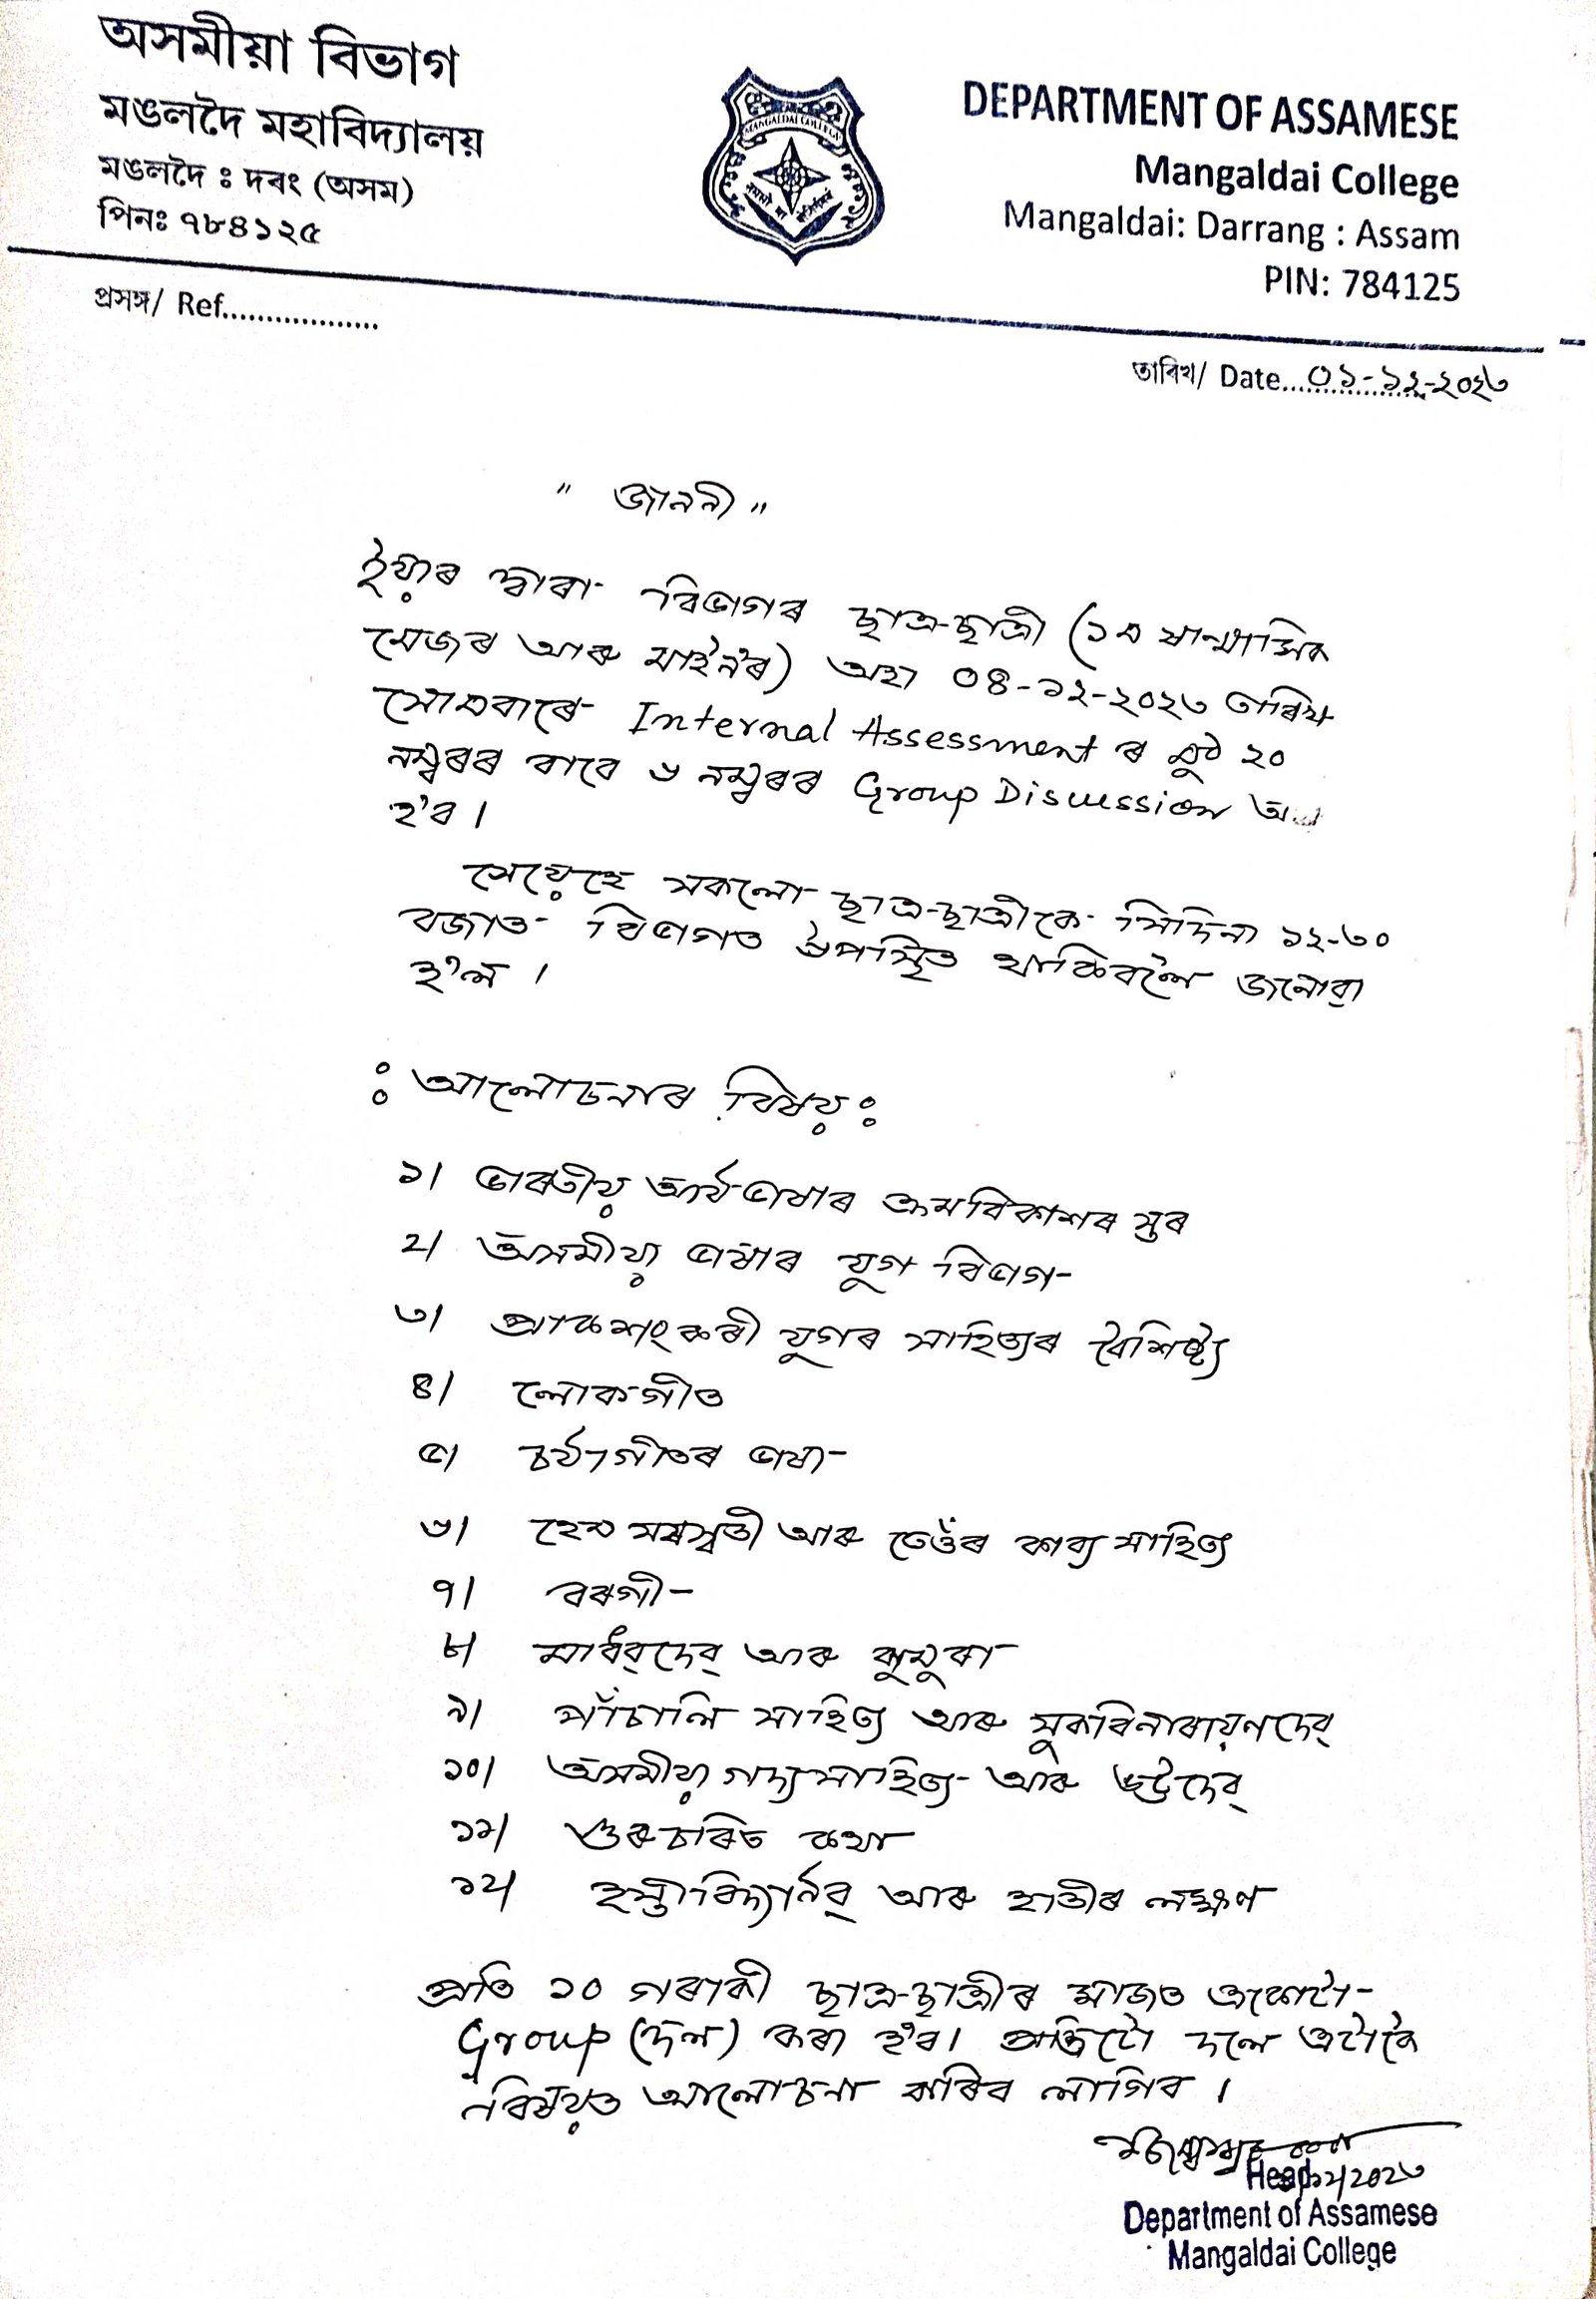 অসমীয়া বিভাগ
মঙলদৈ মহাবিদ্যালয়
মঙলদৈ ঃ দৰং (অসম)
পিনঃ ৭৮৪১২৫
MANGALDAI COLLEGE
DEPARTMENT OF ASSAMESE
Mangaldai College
Mangaldai: Darrang : Assam
PIN: 784125
প্ৰসঙ্গ/ Ref..................
তাৰিখ/ Date...০১-১২-২০২৩
" জাননী "
ইয়াৰ দ্বাৰা বিভাগৰ ছাত্ৰ-ছাত্ৰী (১ম ষান্মাসিক
মেজৰ আৰু মাইন'ৰ) অহা ০৪-১২-২০২৩ তাৰিখ
সোমবাৰে Internal Assessment ৰ মুঠ ২০
নম্বৰৰ বাবে ৬ নম্বৰৰ Group Discussion
হ'ব।
সেয়েহে সকলো ছাত্ৰ-ছাত্ৰীকে সিদিনা ১২-৩০
বজাত বিভাগত উপস্থিত থাকিবলৈ জনোৱা
হ'ল।
ঃ আলোচনাৰ বিষয় ঃ
১। ভাৰতীয় আৰ্যভাষাৰ ক্ৰমবিকাশৰ স্তৰ
২। অসমীয়া ভাষাৰ যুগ বিভাগ
৩। প্ৰাকশংকৰী যুগৰ সাহিত্যৰ বৈশিষ্ট্য
৪। লোকগীত
৫। চৰ্যাগীতৰ ভাষা
৬। হেম সৰস্বতী আৰু তেওঁৰ কাব্য সাহিত্য
৭। বৰগী
৮। মাধৱদেৱ আৰু ঝুমুৰা
৯। পাঁচালি সাহিত্য আৰু সুকবিনাৰায়ণদেৱ
১০। অসমীয়া গদ্য সাহিত্য আৰু ভট্টদেৱ
১১। গুৰুচৰিত কথা
১২। হস্তীবিদ্যাৰ্নৱ আৰু হাতীৰ লক্ষণ
প্ৰতি ১০ গৰাকী ছাত্ৰ-ছাত্ৰীৰ মাজত একোটা
Group (দল) কৰা হ'ব। প্ৰতিটো দলে এটাকৈ
বিষয়ত আলোচনা কৰিব লাগিব।
Head
Department of Assamese
Mangaldai College